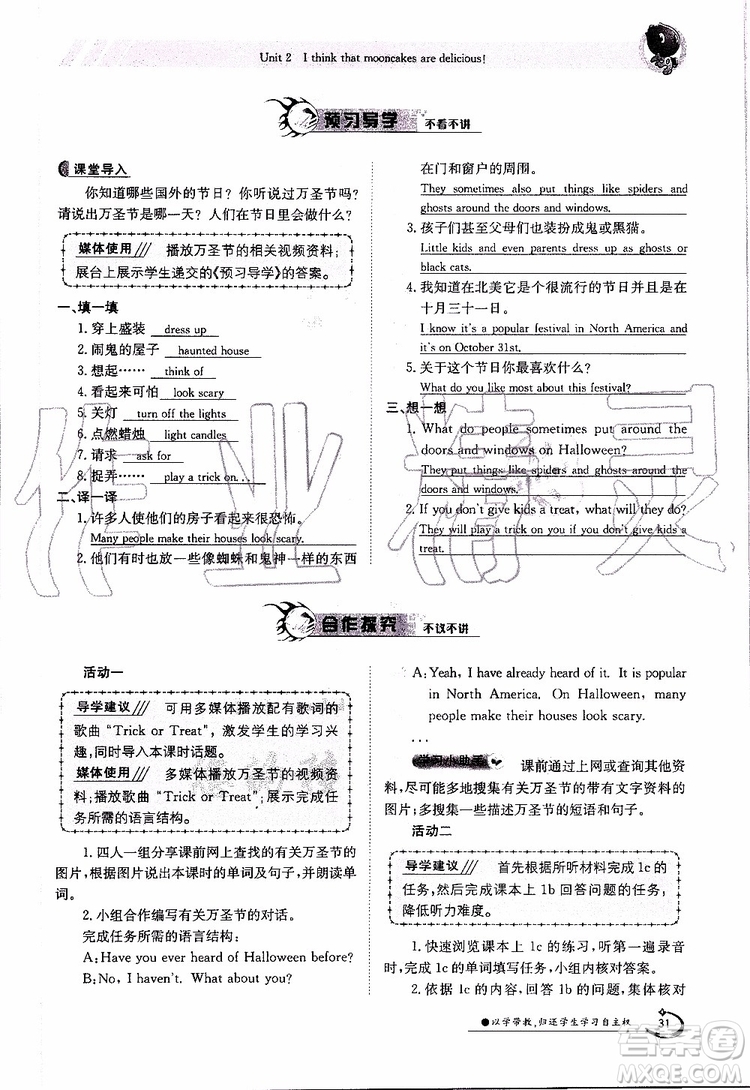 Unit 2 I think that mooncakes are delicious!
预习导学 不看不讲
课堂导入
你知道哪些国外的节日？你听说过万圣节吗？
请说出万圣节是哪一天？人们在节日里会做什么？
媒体使用 播放万圣节的相关视频资料；
展台上展示学生递交的《预习导学》的答案。
一、填一填
1. 穿上盛装 dress up
2. 闹鬼的屋子 haunted house
3. 想起…… think of
4. 看起来可怕 look scary
5. 关灯 turn off the lights
6. 点燃蜡烛 light candles
7. 请求 ask for
8. 捉弄…… play a trick on...
二、译一译
1. 许多人使他们的房子看起来很恐怖。
Many people make their houses look scary.
2. 他们有时也放一些像蜘蛛和鬼神一样的东西
在门和窗户的周围。
They sometimes also put things like spiders and
ghosts around the doors and windows.
3. 孩子们甚至父母们也装扮成鬼或黑猫。
Little kids and even parents dress up as ghosts or
black cats.
4. 我知道在北美它是个很流行的节日并且在
十月三十一日。
I know it's a popular festival in North America and
it's on October 31st.
5. 关于这个节日你最喜欢什么？
What do you like most about this festival?
三、想一想
1. What do people sometimes put around the
doors and windows on Halloween?
They put things like spiders and ghosts around the
doors and windows.
2. If you don't give kids a treat, what will they do?
They will play a trick on you if you don't give kids a
treat.
合作探究 不议不讲
活动一
导学建议 可用多媒体播放配有歌词的
歌曲“Trick or Treat”，激发学生的学习兴
趣，同时导入本课时话题。
媒体使用 多媒体播放万圣节的视频资
料；播放歌曲“Trick or Treat”；展示完成任
务所需的语言结构。
1. 四人一组分享课前网上查找的有关万圣节的
图片，根据图片说出本课时的单词及句子，并朗读单
词。
2. 小组合作编写有关万圣节的对话。
完成任务所需的语言结构：
A: Have you ever heard of Halloween before?
B: No, I haven't. What about you?
A: Yeah, I have already heard of it. It is popular
in North America. On Halloween, many
people make their houses look scary.
...
学习小助手 课前通过上网或查询其他资
料，尽可能多地搜集有关万圣节的带有文字资料的
图片；多搜集一些描述万圣节的短语和句子。
活动二
导学建议 首先根据所听材料完成1c的
任务，然后完成课本上1b回答问题的任务，
降低听力难度。
1. 快速浏览课本上1c的练习，听第一遍录音
时，完成1c的单词填写任务，小组内核对答案。
2. 依据1c的内容，回答1b的问题，集体核对
●以学带教，归还学生学习自主权
31
作业精灵
答案圈
MXQE.COM